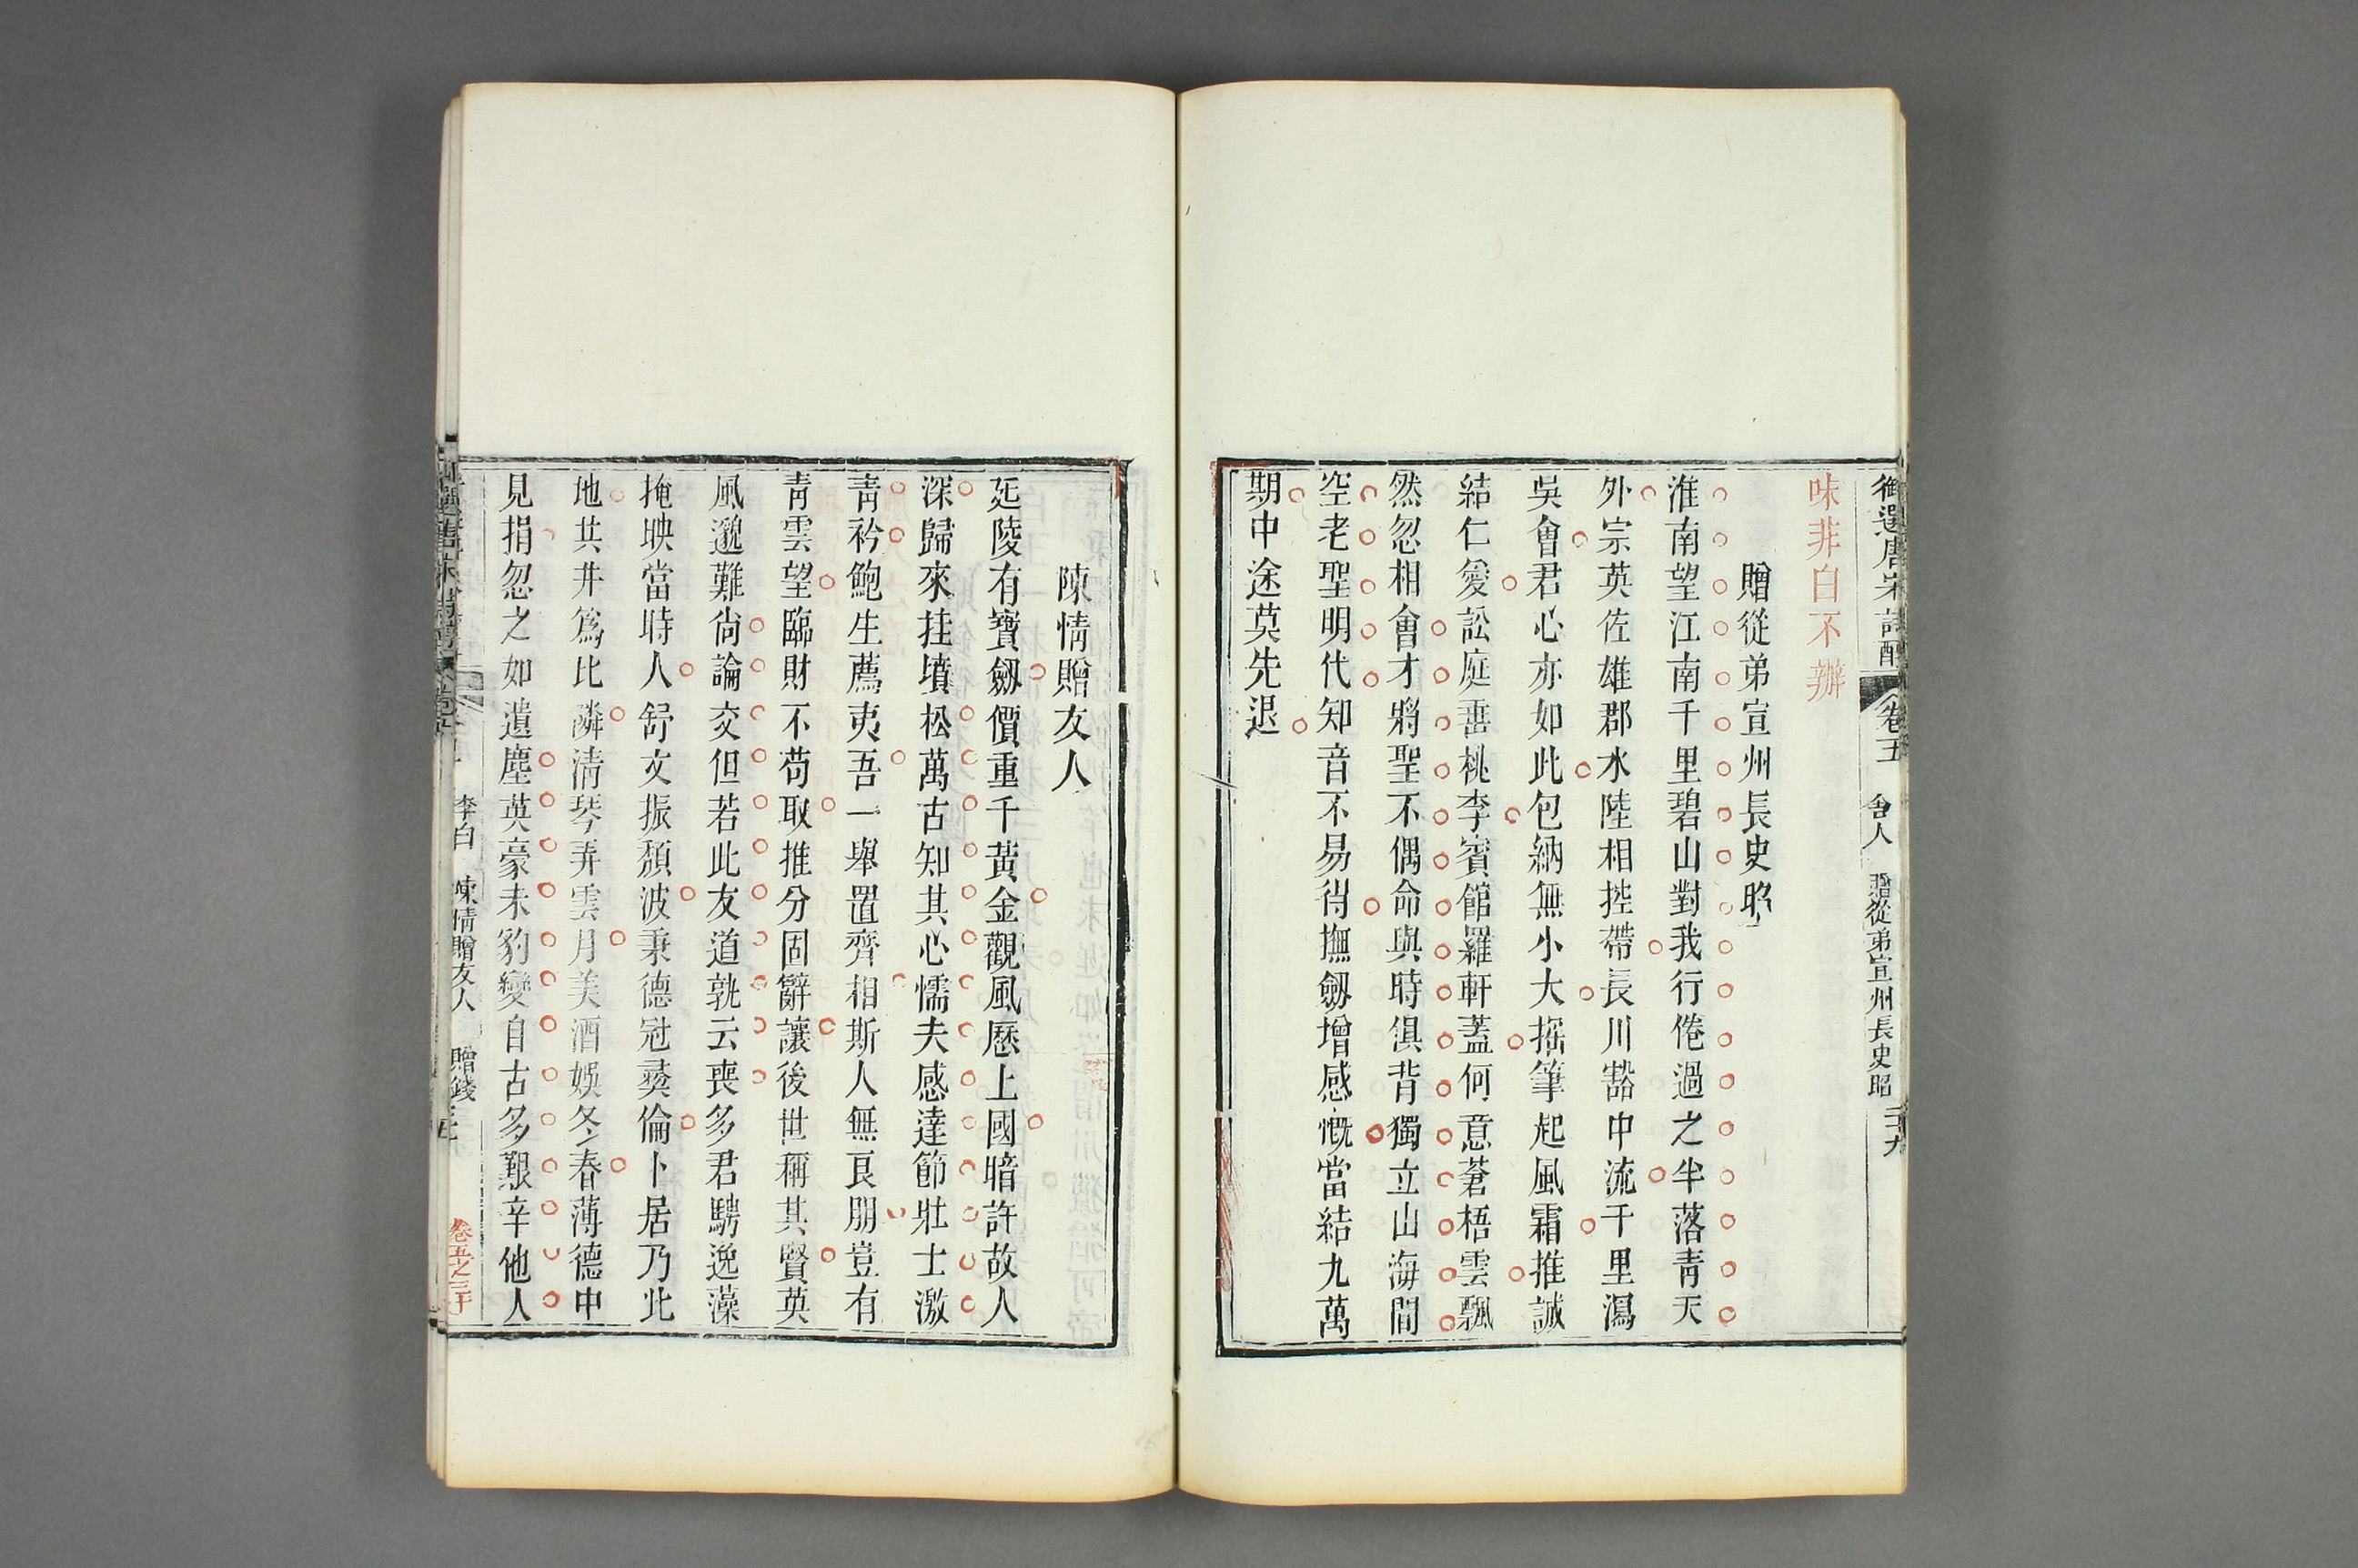 御選唐宋詩醇
卷五
舍人
贈從弟宣州長史昭
二十九
味非白不辦
贈從弟宣州長史昭
淮南望江南千里碧山對我行倦過之半落青天
外宗英佐雄郡水陸相控帶長川豁中流千里瀉
吳會君心亦如此包納無小大搖筆起風霜推誠
結仁愛訟庭垂桃李賓館羅軒蓋何意蒼梧雲飄
然忽相會才將聖不偶命與時俱背獨立山海間
空老聖明代知音不易得撫劒增感慨當結九萬
期中途莫先退
陳情贈友人
延陵有寶劒價重千黃金觀風歷上國暗許故人
深歸來挂墳松萬古知其心懦夫感達節壯士激
靑衿鮑生薦夷吾一舉置齊相斯人無良朋豈有
靑雲望臨財不苟取推分固辭讓後世稱其賢英
風邈難尙論交但若此友道孰云喪多君騁逸藻
掩映當時人舒文振頹波秉德冠彞倫卜居乃此
地共井爲比隣淸琴弄雲月美酒娛冬春薄德中
見捐忽之如遺塵英豪未豹變自古多艱辛他人
李白
陳情贈友人
贈錢
卷五之三十